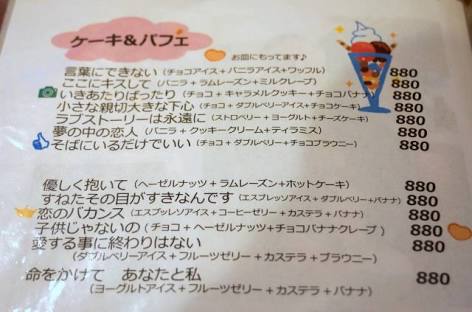 ケーキ&パフェ
お皿にもってます♪
言葉にできない (チョコアイス+バニラアイス+ワッフル) 880
ここにキスして (バニラ+ラムレーズン+ミルクレープ) 880
いきあたりばったり (チョコ+キャラメルクッキー+チョコバナナ) 880
小さな親切大きな下心 (チョコ+ダブルベリーアイス+チョコケーキ) 880
ラブストーリーは永遠に (ストロベリー+ヨーグルト+チーズケーキ) 880
夢の中の恋人 (バニラ+クッキークリーム+ティラミス) 880
そばにいるだけでいい (チョコ+ダブルベリー+チョコブラウニー) 880
優しく抱いて (ヘーゼルナッツ+ラムレーズン+ホットケーキ) 880
すねたその目がすきなんです (エスプレッソアイス+ダブルベリー+バナナ) 880
恋のバカンス (エスプレッソアイス+コーヒーゼリー+カステラ+バナナ) 880
子供じゃないの (チョコ+ヘーゼルナッツ+チョコバナナクレープ) 880
愛する事に終わりはない 880
(ダブルベリーアイス+フルーツゼリー+カステラ+ブラウニー)
命をかけて あなたと私 880
(ヨーグルトアイス+フルーツゼリー+カステラ+バナナ)